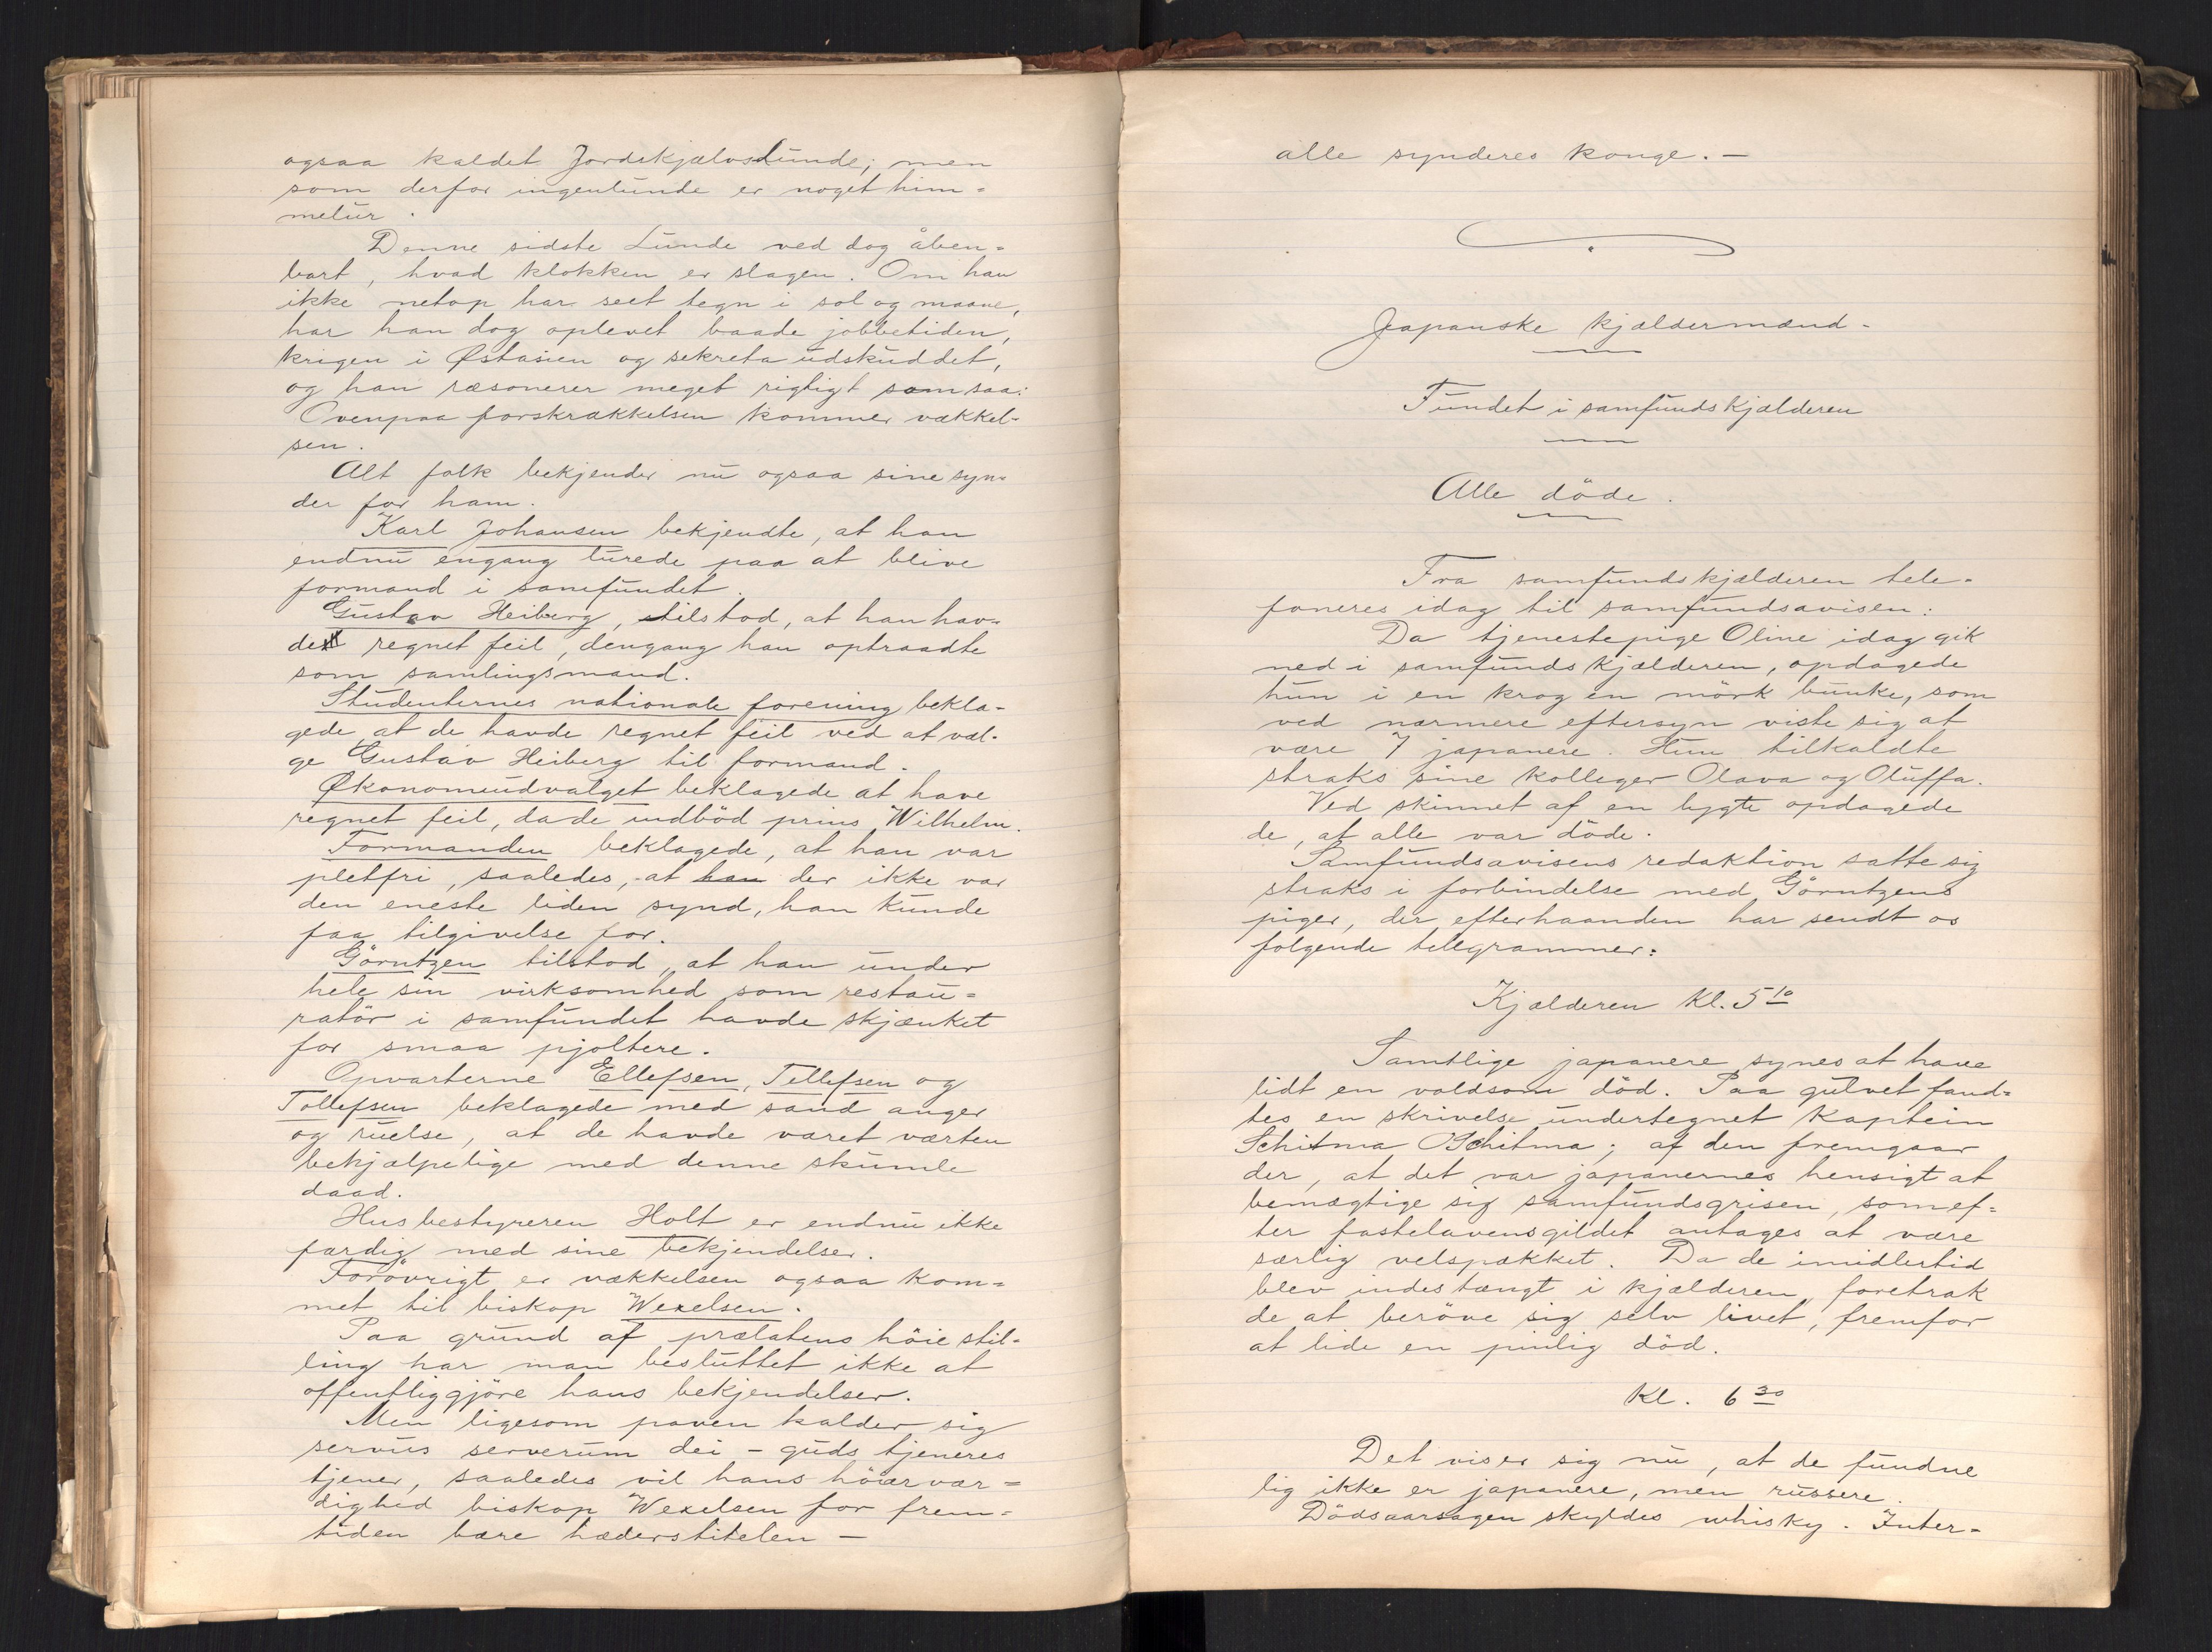 ogsaa kaldet Jordskjælvslunde; men
som derfor ingenlunde er noget him=
melür.
Denne sidste Lunde ved dog åben=
bart, hvad klokken er slagen. Om han
ikke netop har seet tegn i sol og maane,
har han dog oplevet baade jobbetiden,
krigen i Østasien og sekreta udskuddet,
og han ræsonerer meget rigtigt som saa:
Ovenpaa forskrækkelsen kommer vækkel-
sen.
Alt folk bekjender nu ogsaa sine syn=
der for ham.
Karl Johansen bekjendte, at han
endnu engang lurede paa at blive
formand i samfundet.
Gustav Heiberg, tilstod, at han hav=
de regnet feil, dengang han optraadte
som samlingsmand.
Studenternes nationale forening bekla-
gede at de havde regnet feil ved at væl-
ge Gustav Heiberg til formand.
Økonomeudvalget beklagede at have
regnet feil, da de indböd prins Wilhelm.
Formanden beklagede, at han var
pletfri, saaledes, at han der ikke var
den eneste liden synd, han kunde
faa tilgivelse for.
Görntzen tilstod, at han under
hele sin virksomhed som restau=
ratör i samfundet havde skjænket
for smaa pjoltere.
Opvarterne Ellefsen, Tellefsen og
Tollefsen beklagede med sand anger
og ruelse, at de havde været værten
behjælpelige med denne skumle
daad.
Husbestyreren Holt er endnu ikke
færdig med sine bekjendelser.
Forövrigt er vækkelsen ogsaa kom=
met til biskop Wexelsen.
Paa grund af prælatens höie stil-
ling har man besluttet ikke at
offentliggjöre hans bekjendelser.
Men ligesom paven kalder sig
servus serverum dei – guds tjeneres
tjener, saaledes vil hans höiærvær=
dighed biskop Wexelsen for frem=
tiden bære hæderstitelen –
alle synderes konge. –
Japanske kjældermænd.
Fundet i samfundskjælderen
Alle döde.
Fra samfundskjælderen tele=
foneres idag til samfundsavisen:
Da tjenestepige Oline idag gik
ned i samfundskjælderen, opdagede
hun i en krog en mörk bunke, som
ved nærmere eftersyn viste sig at
være 7 japanere. Hun tilkaldte
straks sine kolleger Olava og Oluffa.
Ved skinnet af en lygte opdagede
de, at alle var döde.
Samfundsavisens redaktion satte sig
straks i forbindelse med Görntzens
piger, der efterhaanden har sendt os
følgende tellgrammer:
Kjælderen kl. 5 10
Samtlige japanere synes at have
lidt en voldsom död. Paa gulvet fand=
tes en skrivelse undertegnet kaptein
Schitma OSchitma; af den fremgaar
der, at det var japanernes hensigt at
bemægtige sig samfundsgrisen, som ef=
ter fastelavensgildet antages at være
særlig velspækket. Da de imidlertid
blev indestængt i kjælderen, foretrak
de at beröve sig selv livet, fremfor
at lide en pinlig död.
Kl. 6 30
Det viser sig nu, at de fundne
lig ikke er japanere, men russere.
Dödsaarsagen skyldes whisky. Inter-